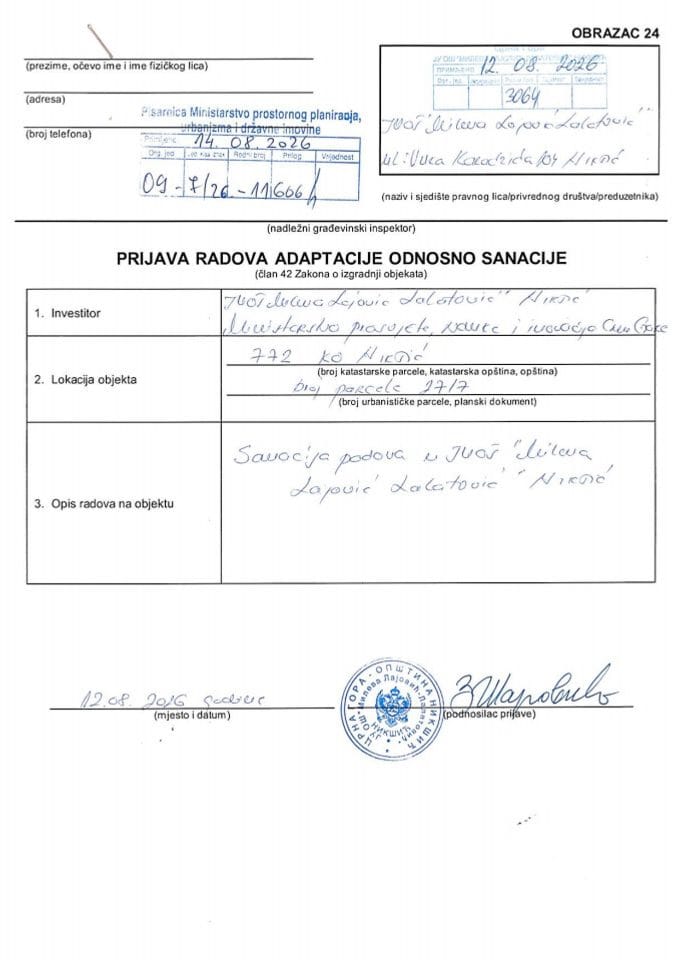 OBRAZAC 24
(prezime, očevo ime i ime fizičkog lica)
(adresa)
(broj telefona)
Pisarnica Ministarstvo prostornog planiranja,
urbanizma i državne imovine
Primljeno: 14. 08. 2026
Org. jed. Redni broj Prilog Vrijednost
09-7/26-11666/1
12. 08. 2026
3064
JUOŠ "Mileva Lajović Lalatović"
ul: Vuka Karadžića Nikšić
(naziv i sjedište pravnog lica/privrednog društva/preduzetnika)
(nadležni građevinski inspektor)
PRIJAVA RADOVA ADAPTACIJE ODNOSNO SANACIJE
(član 42 Zakona o izgradnji objekata)
1. Investitor
JUOŠ Mileva Lajović Lalatović" Nikšić
Ministarstvo prosvjete, nauke i inovacija Crne Gore
2. Lokacija objekta
772 KO Nikšić
(broj katastarske parcele, katastarska opština, opština)
broj parcele 27/7
(broj urbanističke parcele, planski dokument)
3. Opis radova na objektu
Sanacija podova u JUOŠ "Mileva
Lajović Lalatović" Nikšić
12.08. 2026 godine
(mjesto i datum)
ЦРНА ГОРА - ОПШТИНА НИКШИЋ
ЈУОШ "Милева Лајовић-Лалатовић"
НИКШИЋ
З Шаровић
(podnosilac prijave)